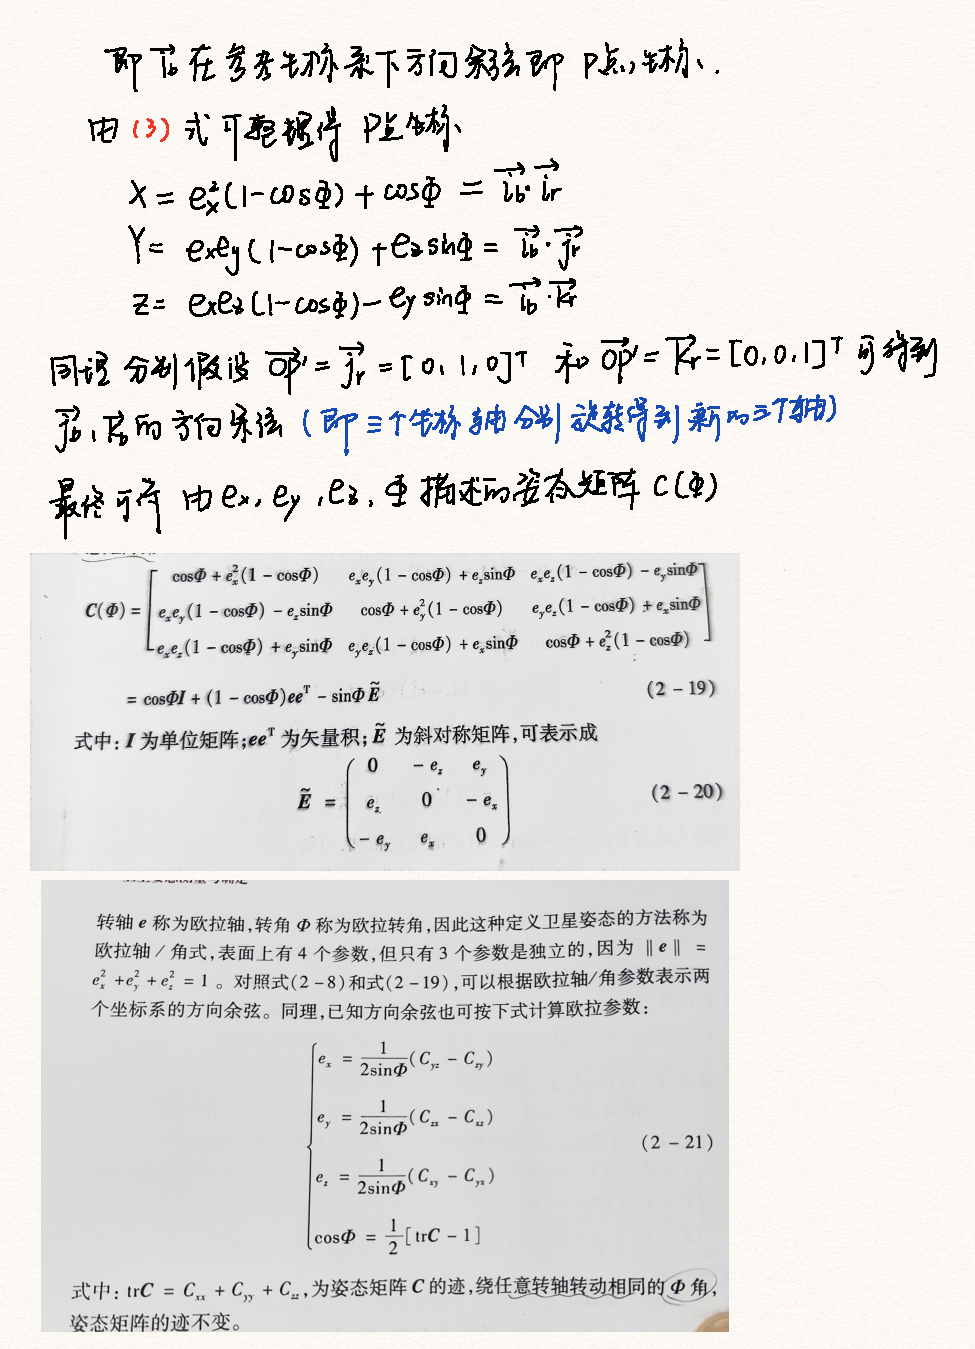 即 i_b 在参考坐标系下方向余弦即 P点坐标.
由(3)式可整理得 P点坐标
X = e_x²(1-cosΦ) + cosΦ = i_b · i_r
Y = e_x e_y (1-cosΦ) + e_z sinΦ = i_b · j_r
Z = e_x e_z (1-cosΦ) - e_y sinΦ = i_b · k_r
同理 分别假设 OP' = j_r = [0, 1, 0]ᵀ 和 OP' = k_r = [0, 0, 1]ᵀ 可得到
j_b, k_b 的方向余弦 (即三个坐标轴分别旋转得到新的三个轴)
最终可得 由 e_x, e_y, e_z, Φ 描述的姿态矩阵 C(Φ)
cosΦ + e_x²(1 - cosΦ)  e_x e_y(1 - cosΦ) + e_z sinΦ  e_x e_z(1 - cosΦ) - e_y sinΦ
C(Φ) = e_x e_y(1 - cosΦ) - e_z sinΦ  cosΦ + e_y²(1 - cosΦ)  e_y e_z(1 - cosΦ) + e_x sinΦ
e_x e_z(1 - cosΦ) + e_y sinΦ  e_y e_z(1 - cosΦ) + e_x sinΦ  cosΦ + e_z²(1 - cosΦ)
= cosΦI + (1 - cosΦ)eeᵀ - sinΦẼ (2 - 19)
式中:I 为单位矩阵;eeᵀ 为矢量积;Ẽ 为斜对称矩阵,可表示成
0  - e_z  e_y
Ẽ = e_z  0  - e_x (2 - 20)
- e_y  e_x  0
转轴 e 称为欧拉轴,转角 Φ 称为欧拉转角,因此这种定义卫星姿态的方法称为
欧拉轴/角式,表面上有 4 个参数,但只有 3 个参数是独立的,因为 ‖e‖ =
e_x² + e_y² + e_z² = 1 。对照式(2-8)和式(2-19),可以根据欧拉轴/角参数表示两
个坐标系的方向余弦。同理,已知方向余弦也可按下式计算欧拉参数:
e_x = 1/(2sinΦ) (C_yz - C_zy)
e_y = 1/(2sinΦ) (C_zx - C_xz)
(2 - 21)
e_z = 1/(2sinΦ) (C_xy - C_yx)
cosΦ = 1/2 [trC - 1]
式中:trC = C_xx + C_yy + C_zz,为姿态矩阵 C 的迹,绕任意转轴转动相同的 Φ 角,
姿态矩阵的迹不变。